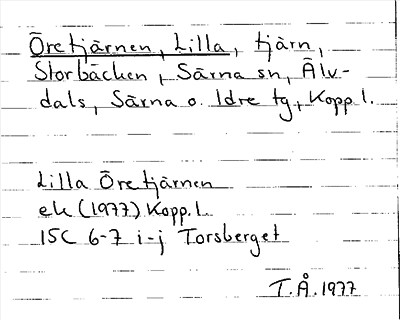 Öretjärnen, Lilla, tjärn,
Storbäcken, Särna sn, Älv-
dals, Särna o. Idre tg, Kopp l.
Lilla Öretjärnen
ek (1977) Kopp. l.
15C 6-7 i-j Torsberget
T.Å. 1977